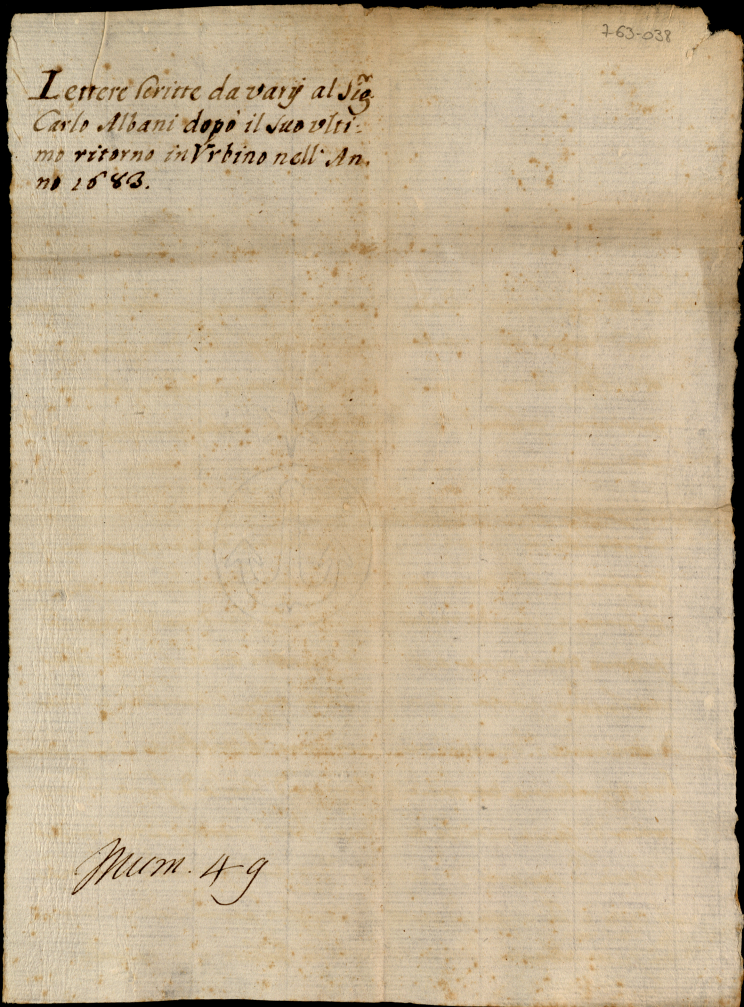 763-038
Lettere scritte da varij al Sig.r
Carlo Albani dopò il suo vlti-
mo ritorno in Vrbino nell' An-
no 1683.
Num. 49